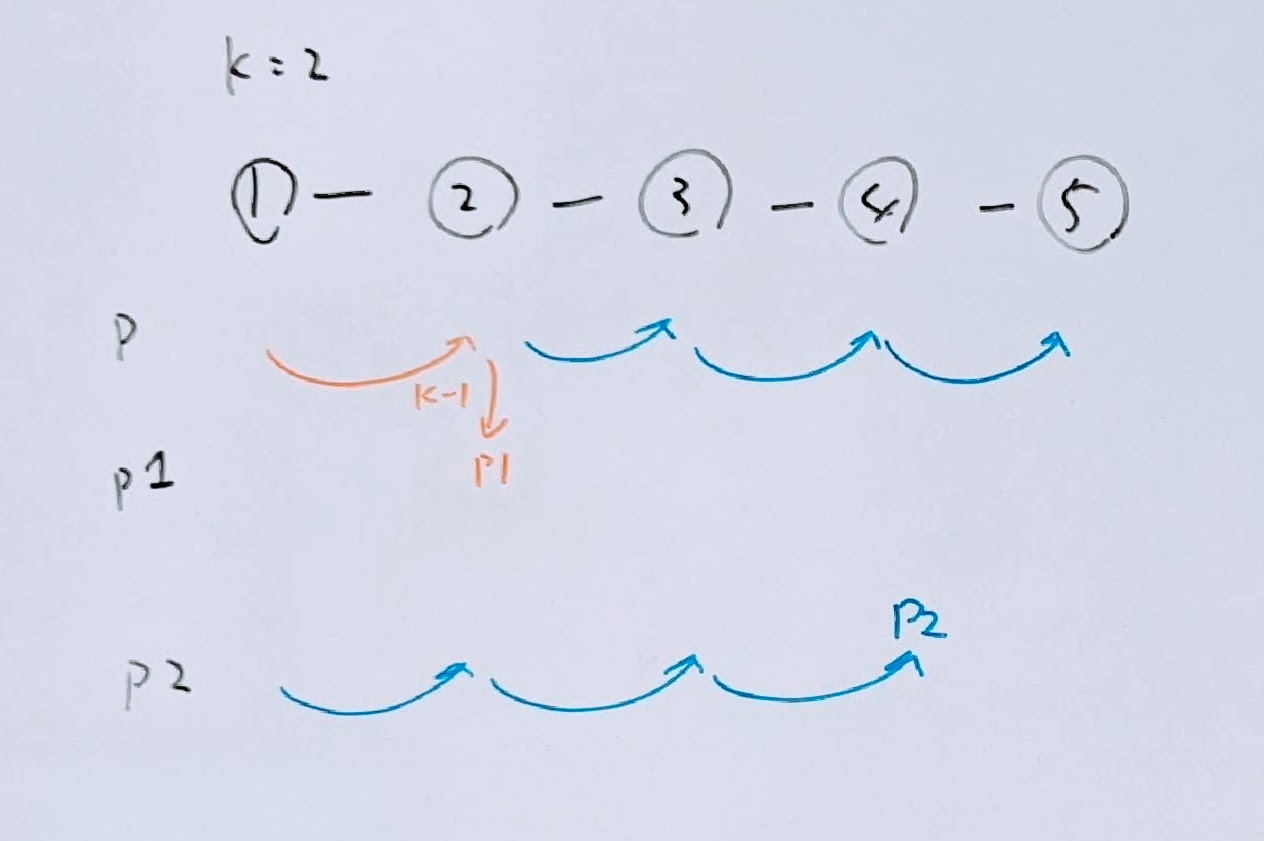 k=2
1 - 2 - 3 - 4 - 5
p
k-1
p1
p1
p2
p2